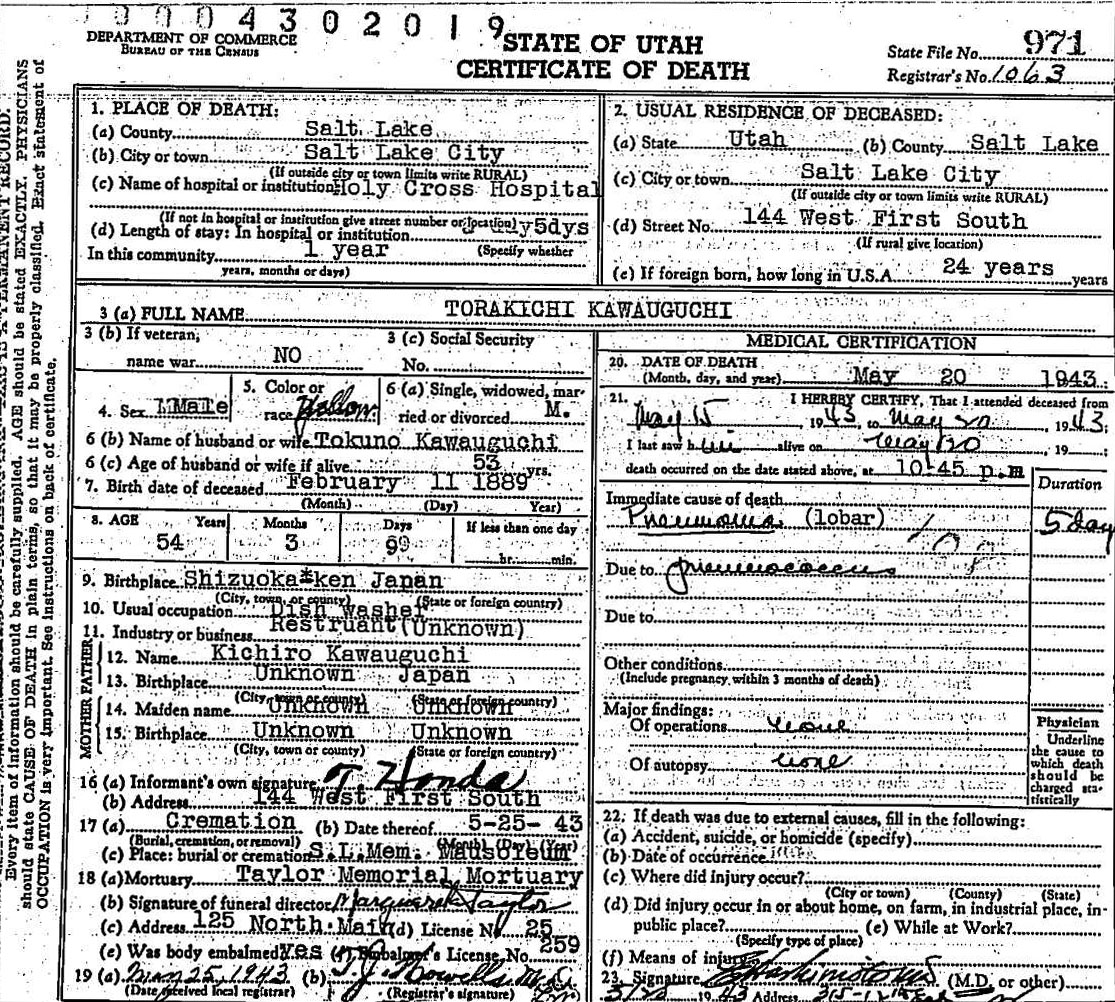 0 0 0 4 3 0 2 0 1 9
DEPARTMENT OF COMMERCE
BUREAU OF THE CENSUS
STATE OF UTAH
CERTIFICATE OF DEATH
State File No. 971
Registrar's No. 1063
Every item of information should be carefully supplied. AGE should be stated EXACTLY. PHYSICIANS
should state CAUSE OF DEATH in plain terms, so that it may be properly classified. Exact statement of
OCCUPATION is very important. See instructions on back of certificate.
1. PLACE OF DEATH:
(a) County Salt Lake
(b) City or town Salt Lake City
(If outside city or town limits write RURAL)
(c) Name of hospital or institution: Holy Cross Hospital
(If not in hospital or institution give street number or location)
(d) Length of stay: In hospital or institution 5dys
In this community 1 year (Specify whether
years, months or days)
2. USUAL RESIDENCE OF DECEASED:
(a) State Utah (b) County Salt Lake
(c) City or town Salt Lake City
(If outside city or town limits write RURAL)
(d) Street No. 144 West First South
(If rural give location)
(e) If foreign born, how long in U.S.A. 24 years years
3 (a) FULL NAME TORAKICHI KAWAUGUCHI
3 (b) If veteran,
name war NO
3 (c) Social Security
No.
4. Sex Male
5. Color or
race Yellow
6 (a) Single, widowed, mar-
ried or divorced M.
6 (b) Name of husband or wife Tokuno Kawauguchi
6 (c) Age of husband or wife if alive 53 yrs.
7. Birth date of deceased February 11 1889
(Month) (Day) Year)
8. AGE Years Months Days If less than one day
54 3 99 hr. min.
9. Birthplace Shizuoka*ken Japan
(City, town, or county) (State or foreign country)
10. Usual occupation Dish washer
11. Industry or business Restruant (Unknown)
FATHER
12. Name Kichiro Kawauguchi
13. Birthplace Unknown Japan
(City, town or county) (State or foreign country)
MOTHER
14. Maiden name Unknown Unknown
15. Birthplace Unknown Unknown
(City, town or county) (State or foreign country)
16 (a) Informant's own signature T Honda
(b) Address 144 West First South
17 (a) Cremation (b) Date thereof 5-25- 43
(Burial, cremation, or removal) (Month) (Day) (Year)
(c) Place: burial or cremation S.L.Mem. Mausoleum
18 (a) Mortuary Taylor Memorial Mortuary
(b) Signature of funeral director Marguerite Taylor
(c) Address 125 North Main (d) License No 25
(e) Was body embalmed? Yes (f) Embalmer's License No. 259
19 (a) May 25, 1943 (b) T.J. Howells M.D.
(Date received local registrar) (Registrar's signature)
MEDICAL CERTIFICATION
20. DATE OF DEATH
(Month, day, and year) May 20 1943
21. I HEREBY CERTIFY, That I attended deceased from
May 15, 1943, to May 20, 1943;
I last saw him alive on May 20, 19 ;
death occurred on the date stated above, at 10-45 p.m
Duration
Immediate cause of death
Pneumonia (lobar) 5 day
108
Due to pneumococcus
Due to
Other conditions
(Include pregnancy within 3 months of death)
Major findings:
Of operations none
Of autopsy none
Physician
Underline
the cause to
which death
should be
charged sta-
tistically
22. If death was due to external causes, fill in the following:
(a) Accident, suicide, or homicide (specify)
(b) Date of occurrence
(c) Where did injury occur?
(City or town) (County) (State)
(d) Did injury occur in or about home, on farm, in industrial place, in
public place? (e) While at Work?
(Specify type of place)
(f) Means of injury
23. Signature (M.D. or other)
5/20 1943 Address